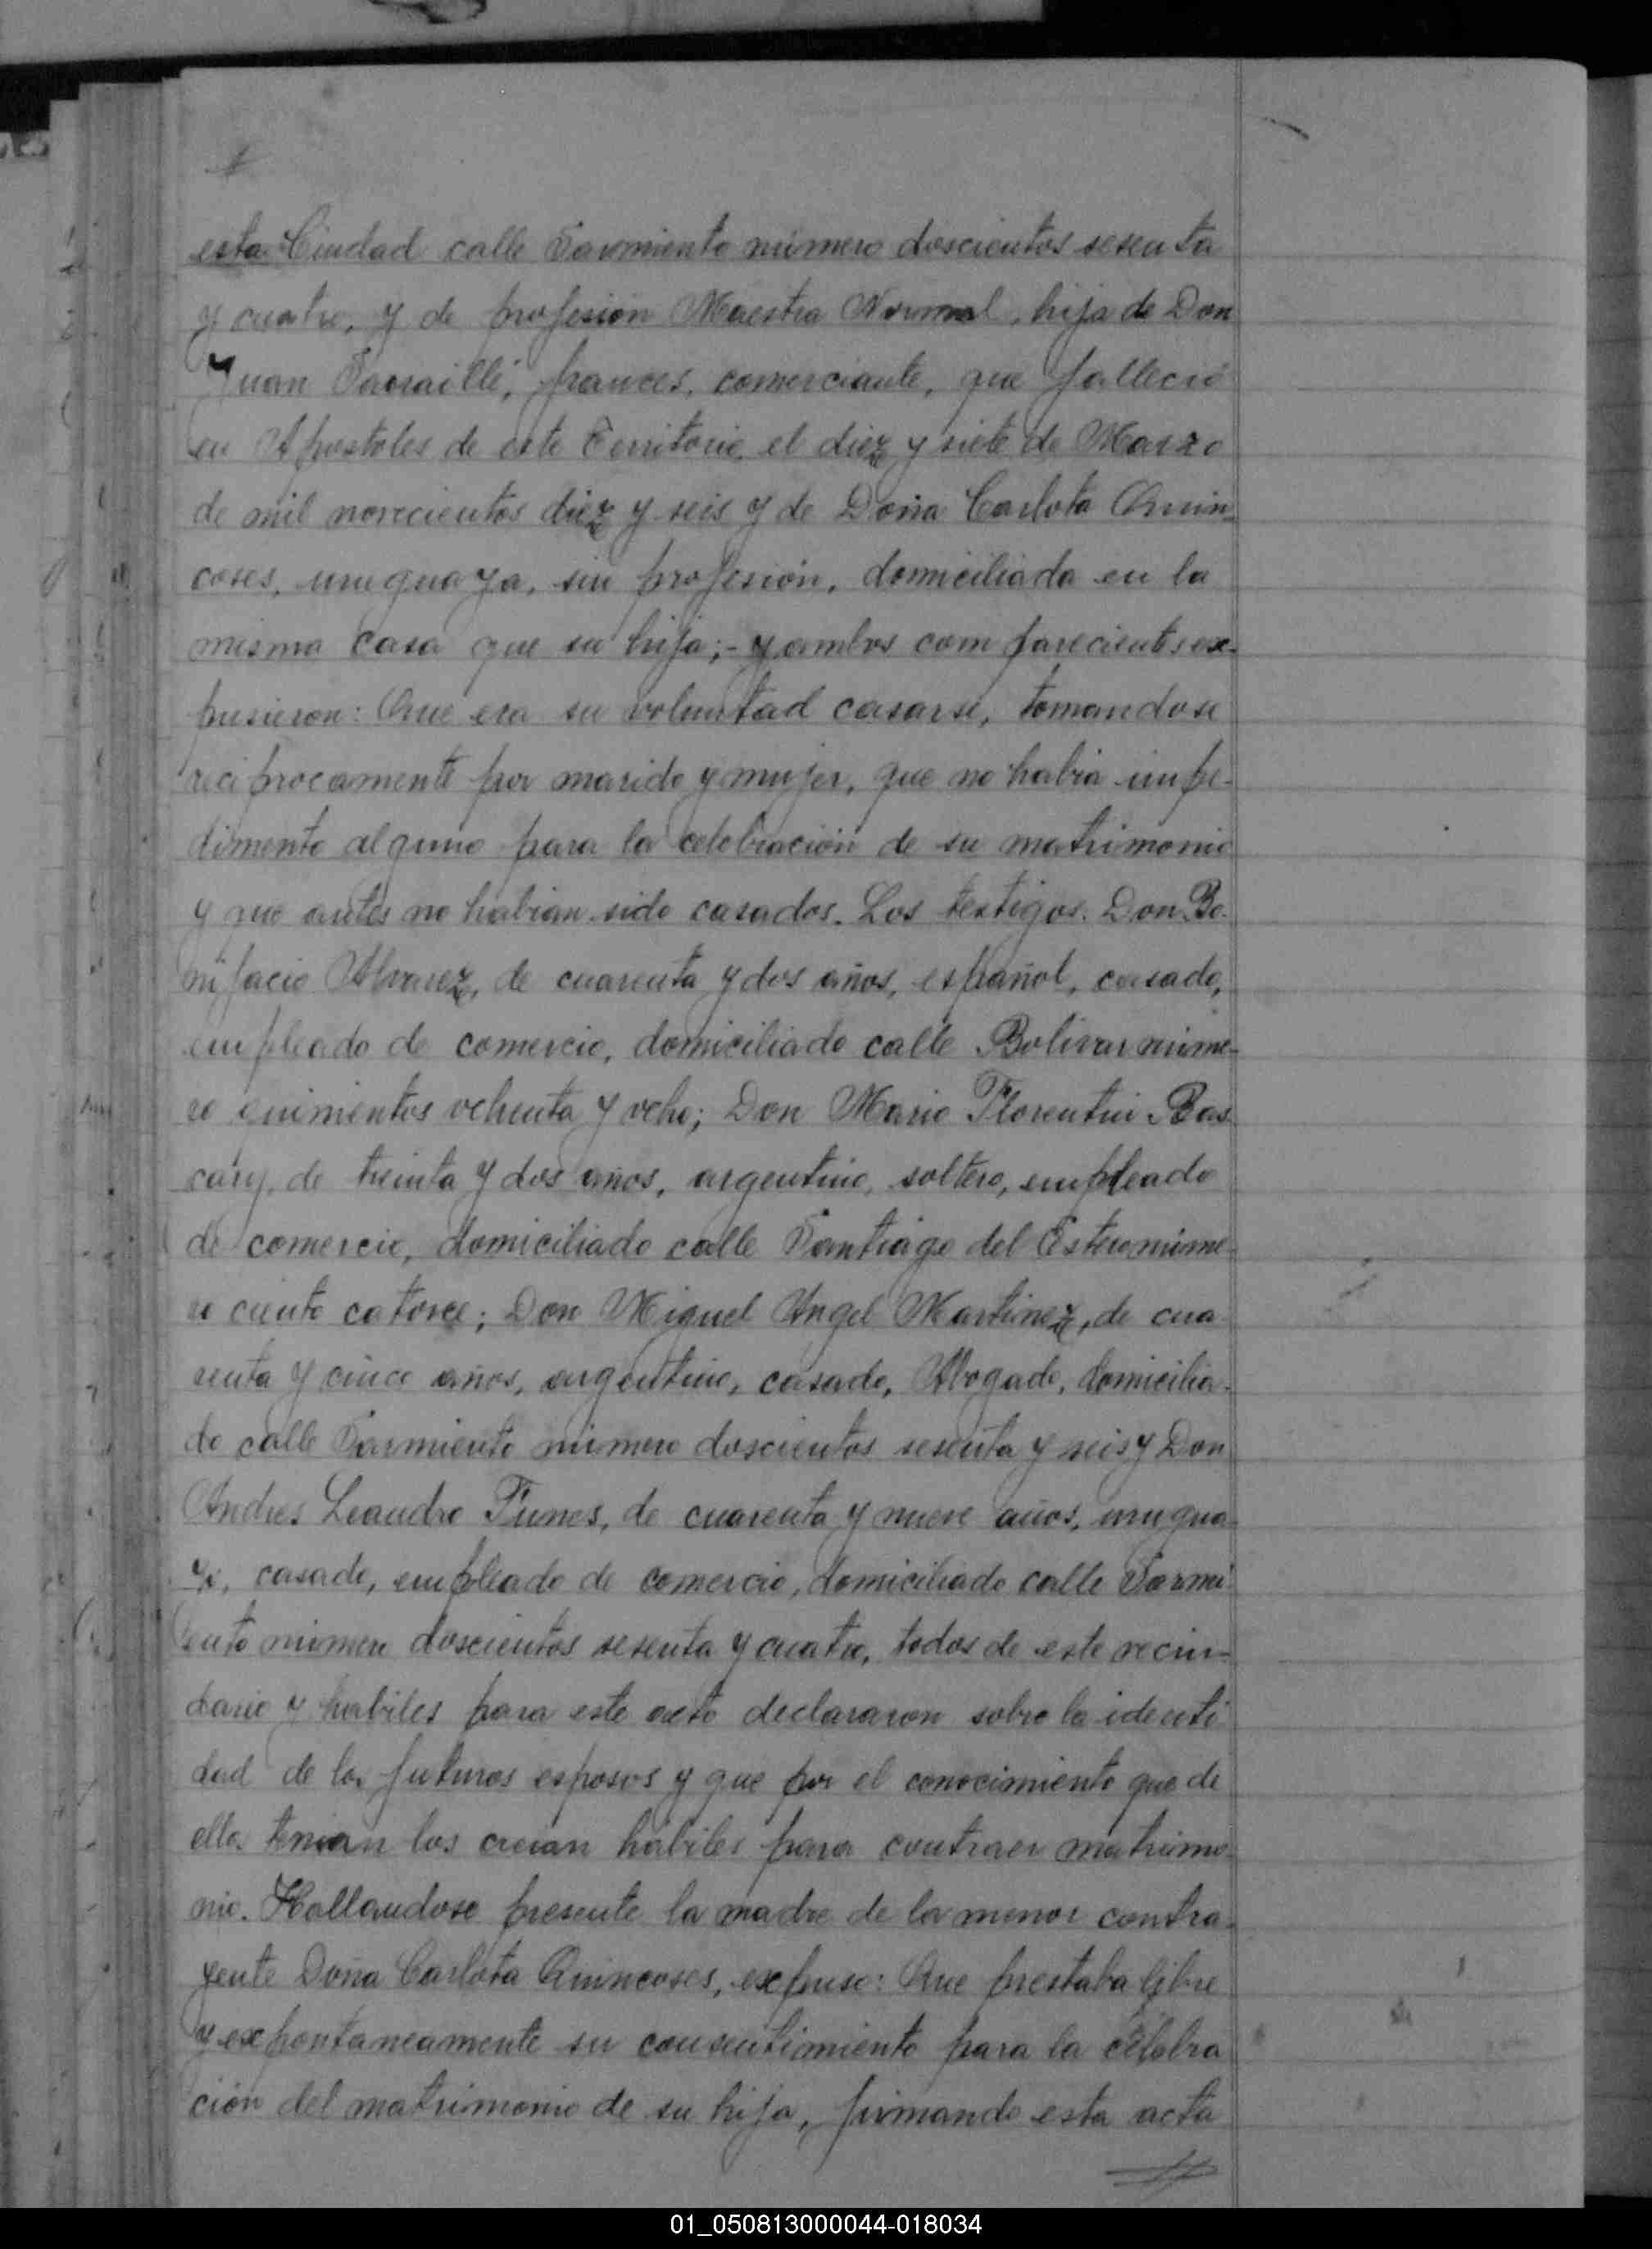 esta Ciudad calle Sarmiento número doscientos sesenta
y cuatro, y de profesión Maestra Normal, hija de Don
Juan Sarraillé, frances, comerciante, que falleció
en Apostoles de este Territorio, el diez y siete de Marzo
de mil novecientos diez y seis y de Doña Carlota Quin-
coses, uruguaya, sin profesión, domiciliada en la
misma casa que su hija;- y ambos comparecientes ex-
pusieron: Que era su voluntad casarse, tomandose
reciprocamente por marido y mujer, que no habia impe-
dimento alguno para la celebración de su matrimonio
y que antes no habian sido casados. Los testigos. Don Bo-
nifacio Alvarez, de cuarenta y dos años, español, casado,
empleado de comercio, domiciliado calle Bolivar núme-
ro quinientos ochenta y ocho; Don Mario Florentin Bas
cary, de treinta y dos años, argentino, soltero, empleado
de comercio, domiciliado calle Santiago del Estero núme-
ro ciento catorce; Don Miguel Angel Martinez, de cua
renta y cinco años, argentino, casado, Abogado, domicilia-
do calle Sarmiento número doscientos sesenta y seis y Don
Andres Leandro Funes, de cuarenta y nueve años, urugua-
yo, casado, empleado de comercio, domiciliado calle Sarmi-
ento número doscientos sesenta y cuatro, todos de este vecin-
dario y habiles para este acto declararon sobre la identi
dad de los futuros esposos y que por el conocimiento que de
ellos tenian los creian hábiles para contraer matrimo-
nio. Hallandose presente la madre de la menor contra-
yente Doña Carlota Quincoses, expuso: Que prestaba libre
y expontaneamente su consentimiento para la celebra
ción del matrimonio de su hija, firmando esta acta
01_050813000044-018034